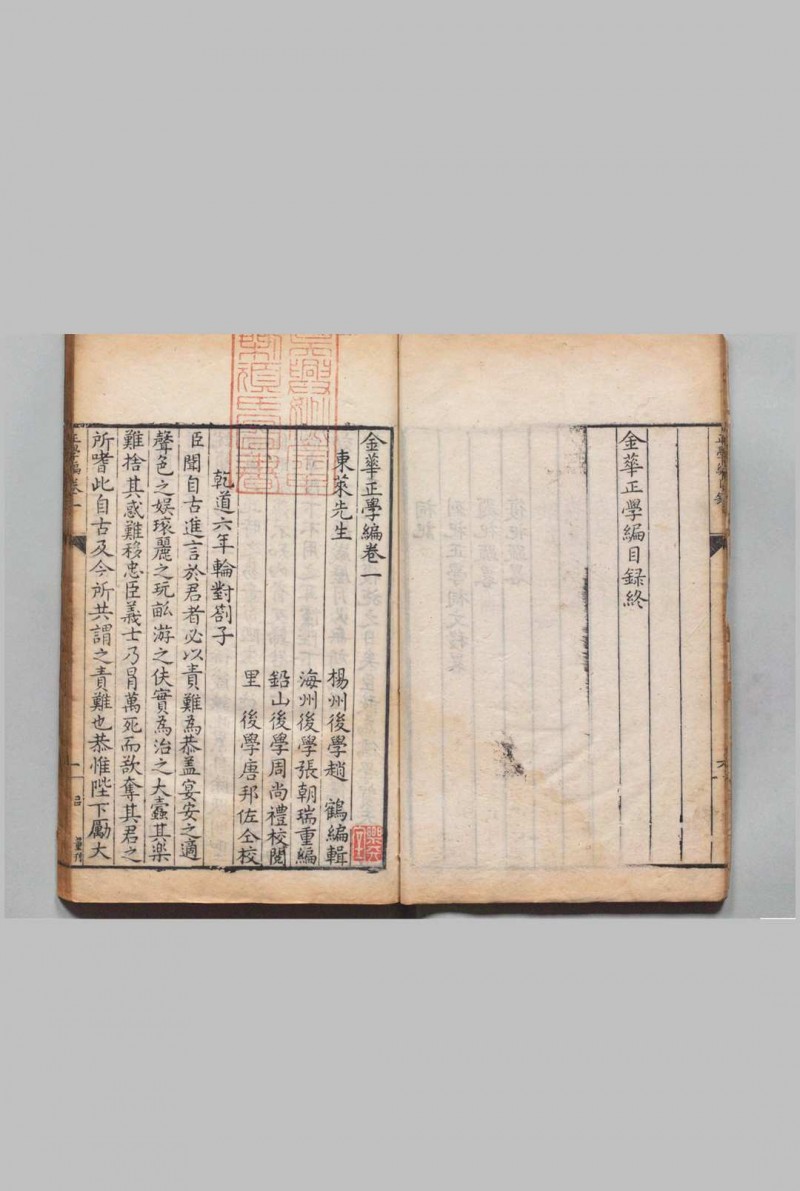 金華正學編目録終
金華正學編卷一
東萊先生
楊州後學趙 鶴編輯
海州後學張朝瑞重編
鉛山後學周尚禮校閲
里 後學唐邦佐仝校
乹道六年輪對劄子
臣聞自古進言於君者必以責難為恭盖宴安之適
聲色之娱瓌麗之玩畋游之佚實為治之大蠹其樂
難捨其惑難移忠臣義士乃冐萬死而欲奪其君之
所嗜此自古及今所共謂之責難也恭惟陛下勵大
正學編卷一
一